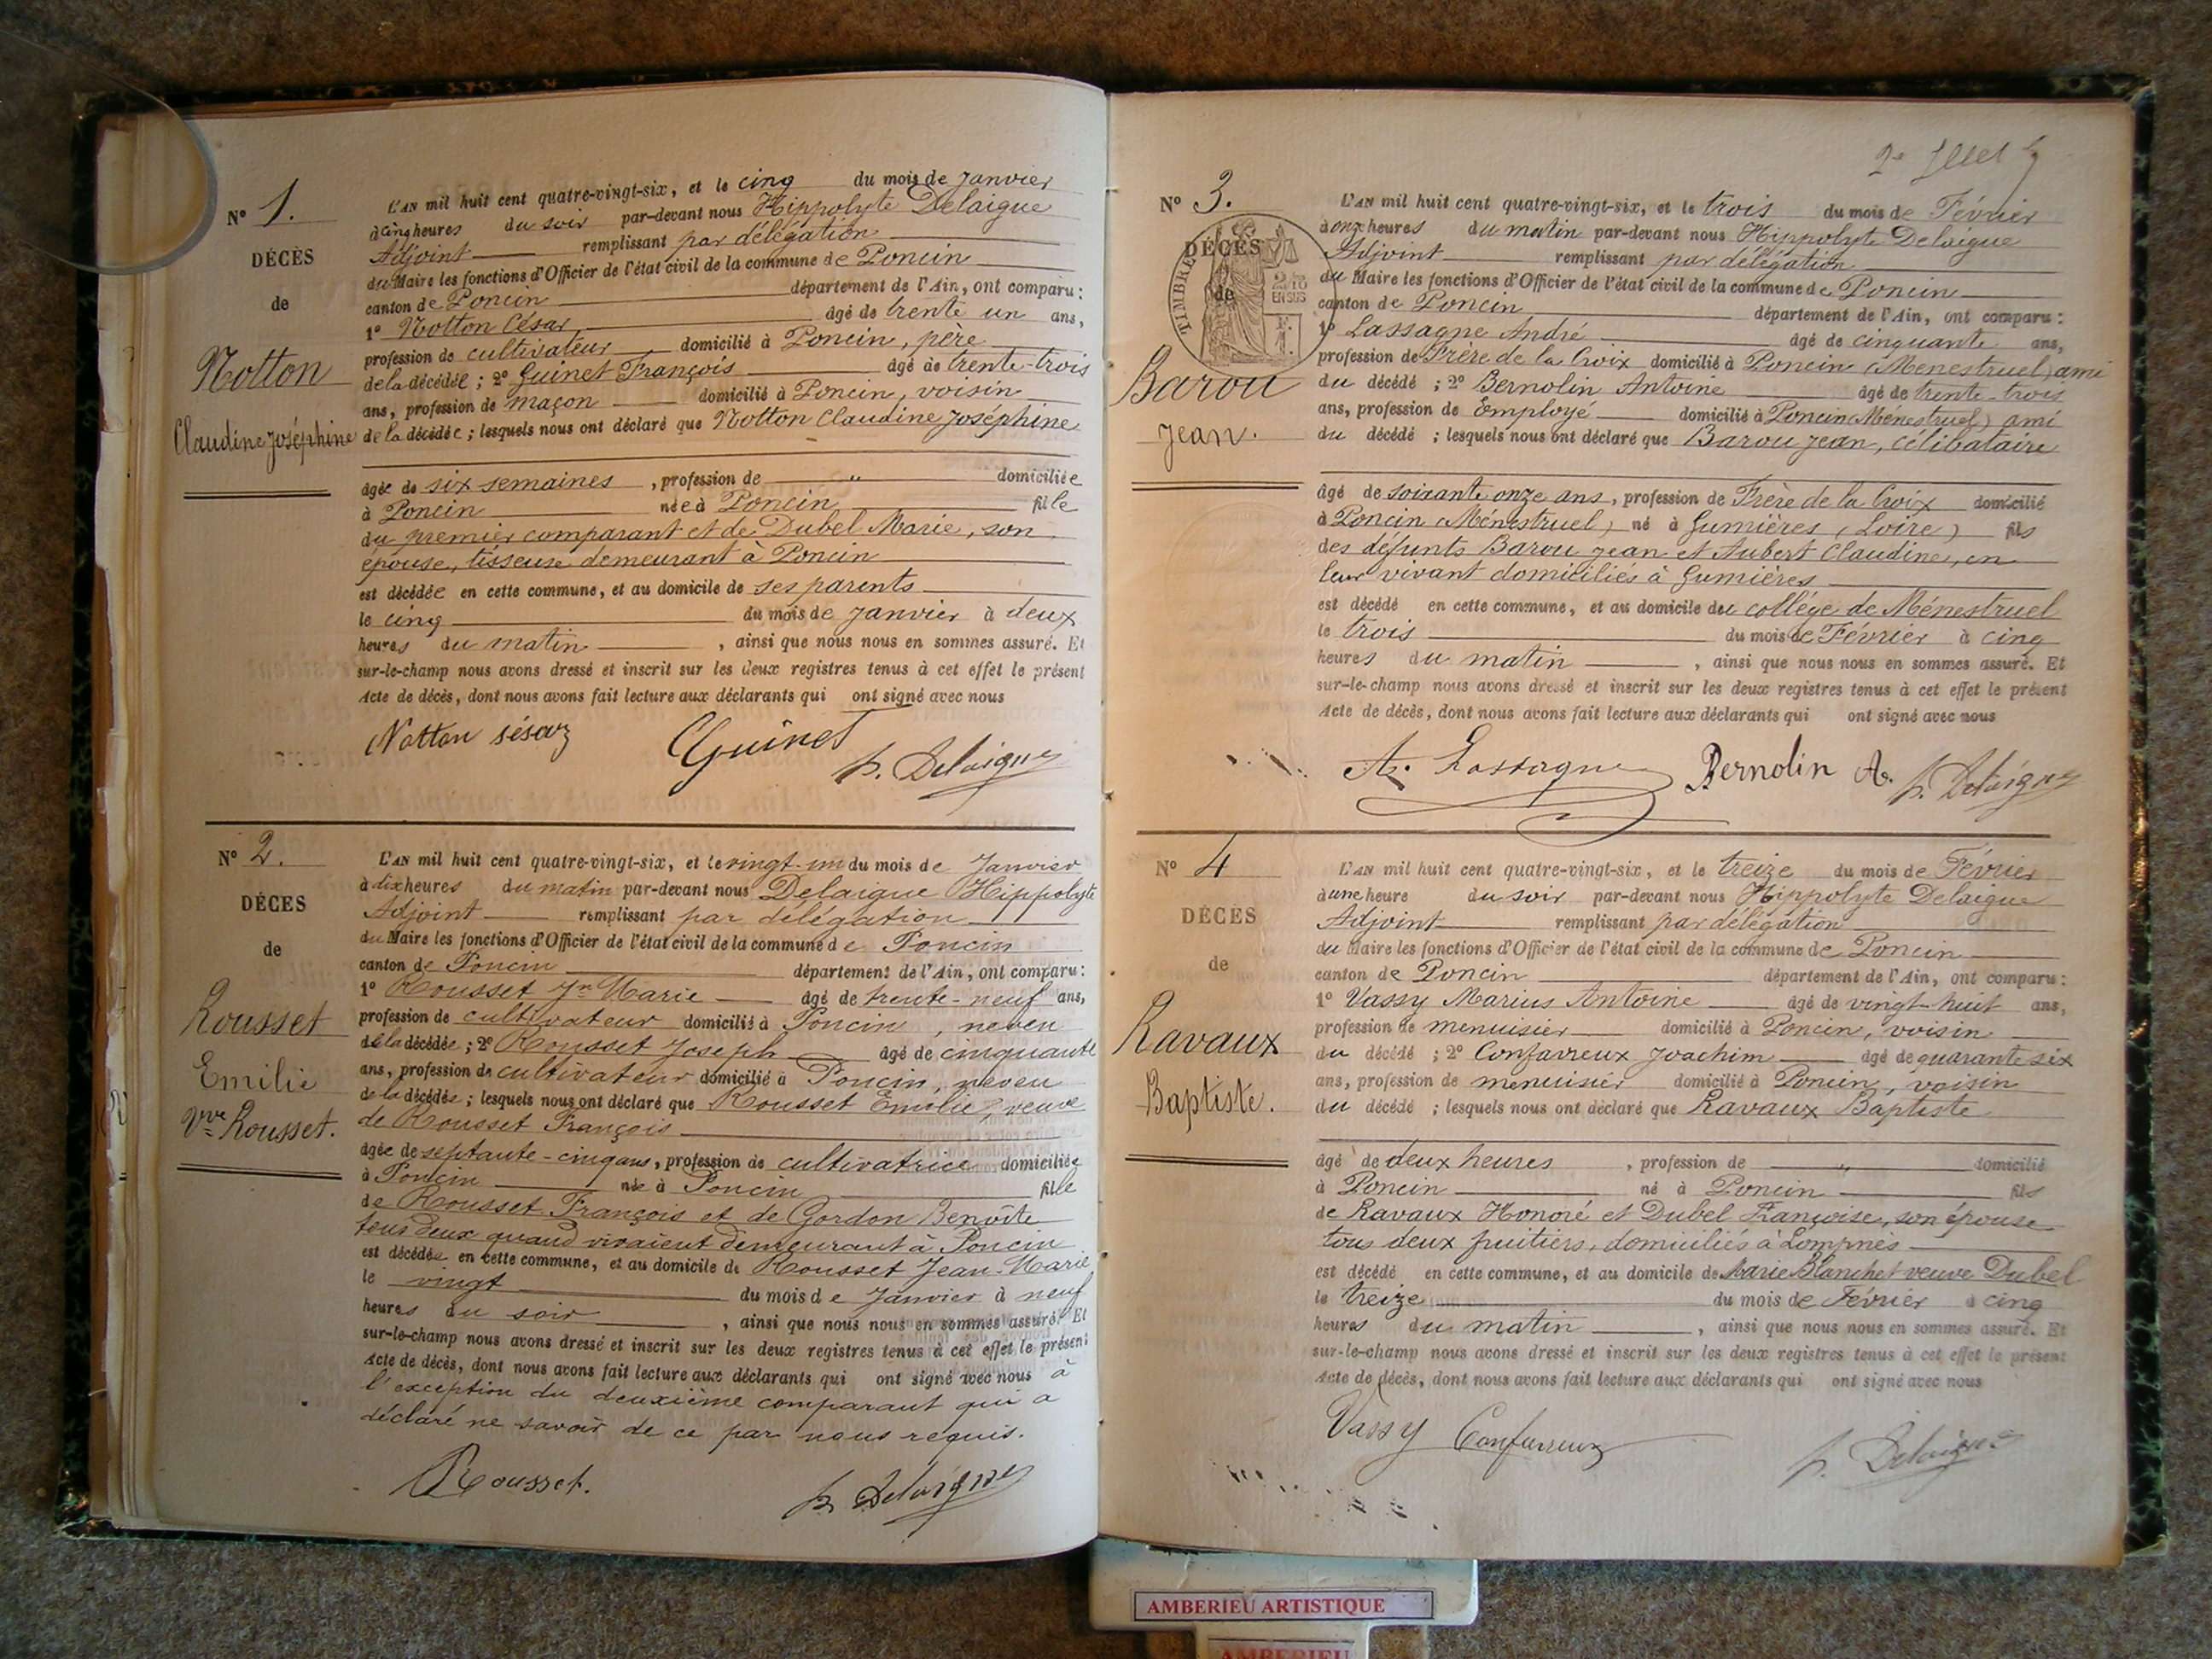 N° 1.
DÉCÈS
de
Notton
Claudine Joséphine
L'AN mil huit cent quatre-vingt-six, et le cinq du mois de Janvier
à cinq heures du soir par-devant nous Hippolyte Delaigue
Adjoint remplissant par délégation
du Maire les fonctions d'Officier de l'état civil de la commune de Poncin
canton de Poncin département de l'Ain, ont comparu :
1° Notton César, âgé de trente un ans,
profession de cultivateur domicilié à Poncin, père
de la décédée ; 2° Guinet François âgé de trente-trois
ans, profession de maçon domicilié à Poncin, voisin
de la décédée ; lesquels nous ont déclaré que Notton Claudine Joséphine
âgée de six semaines , profession de " domiciliée
à Poncin née à Poncin fille
du premier comparant et de Dubel Marie, son
épouse, tisseuse demeurant à Poncin
est décédée en cette commune, et au domicile de ses parents
le cinq du mois de Janvier à deux
heures du matin , ainsi que nous nous en sommes assuré. Et
sur-le-champ nous avons dressé et inscrit sur les deux registres tenus à cet effet le présent
Acte de décès, dont nous avons fait lecture aux déclarants qui ont signé avec nous
Notton sésar Guinet h. Delaigue
N° 2.
DÉCÈS
de
Rousset
Emilie
Vve Rousset.
L'AN mil huit cent quatre-vingt-six, et le vingt-un du mois de Janvier
à dix heures du matin par-devant nous Delaigue Hippolyte
Adjoint remplissant par délégation
du Maire les fonctions d'Officier de l'état civil de la commune de Poncin
canton de Poncin département de l'Ain, ont comparu :
1° Rousset Jn Marie âgé de trente-neuf ans,
profession de cultivateur domicilié à Poncin, neveu
de la décédée ; 2° Rousset Joseph âgé de cinquante
ans, profession de cultivateur domicilié à Poncin, neveu
de la décédée ; lesquels nous ont déclaré que Rousset Emilie, veuve
de Rousset François
âgée de septante-cinq ans, profession de cultivatrice domiciliée
à Poncin née à Poncin fille
de Rousset François et de Gordon Benoîte
tous deux quand vivaient demeurant à Poncin
est décédée en cette commune, et au domicile de Rousset Jean-Marie
le vingt du mois de Janvier à neuf
heures du soir , ainsi que nous nous en sommes assuré. Et
sur-le-champ nous avons dressé et inscrit sur les deux registres tenus à cet effet le présent
Acte de décès, dont nous avons fait lecture aux déclarants qui ont signé avec nous à
l'exception du deuxième comparant qui a
déclaré ne savoir de ce par nous requis.
Rousset. h. Delaigue
N° 3.
DÉCÈS
de
TIMBRE
2/10
EN SUS
Barou
Jean.
L'AN mil huit cent quatre-vingt-six, et le trois du mois de Février
à onze heures du matin par-devant nous Hippolyte Delaigue
Adjoint remplissant par délégation
du Maire les fonctions d'Officier de l'état civil de la commune de Poncin
canton de Poncin département de l'Ain, ont comparu :
1° Lassagne André âgé de cinquante ans,
profession de Frère de la Croix domicilié à Poncin (Menestruel) ami
du décédé ; 2° Bernolin Antoine âgé de trente-trois
ans, profession de Employé domicilié à Poncin (Ménestruel) ami
du décédé ; lesquels nous ont déclaré que Barou Jean, célibataire
âgé de soixante onze ans, profession de Frère de la Croix domicilié
à Poncin (Ménestruel) né à Gumières (Loire) fils
des défunts Barou Jean et Aubert Claudine, en
leur vivant domiciliés à Gumières
est décédé en cette commune, et au domicile du collège de Ménestruel
le trois du mois de Février à cinq
heures du matin , ainsi que nous nous en sommes assuré. Et
sur-le-champ nous avons dressé et inscrit sur les deux registres tenus à cet effet le présent
Acte de décès, dont nous avons fait lecture aux déclarants qui ont signé avec nous
A. Lassagne Bernolin A. h. Delaigue
N° 4
DÉCÈS
de
Ravaux
Baptiste.
L'AN mil huit cent quatre-vingt-six, et le treize du mois de Février
à une heure du soir par-devant nous Hippolyte Delaigue
Adjoint remplissant par délégation
du Maire les fonctions d'Officier de l'état civil de la commune de Poncin
canton de Poncin département de l'Ain, ont comparu :
1° Vassy Marius Antoine âgé de vingt-huit ans,
profession de menuisier domicilié à Poncin, voisin
du décédé ; 2° Confavreux Joachim âgé de quarante six
ans, profession de menuisier domicilié à Poncin, voisin
du décédé ; lesquels nous ont déclaré que Ravaux Baptiste
âgé de deux heures , profession de " domicilié
à Poncin né à Poncin fils
de Ravaux Honoré et Dubel Françoise, son épouse
tous deux fruitiers, domiciliés à Lompnes
est décédé en cette commune, et au domicile de Marie Blanchet veuve Dubel
le treize du mois de Février à cinq
heures du matin , ainsi que nous nous en sommes assuré. Et
sur-le-champ nous avons dressé et inscrit sur les deux registres tenus à cet effet le présent
Acte de décès, dont nous avons fait lecture aux déclarants qui ont signé avec nous
Vassy Confavreux h. Delaigue
AMBERIEU ARTISTIQUE
AMBERIEU